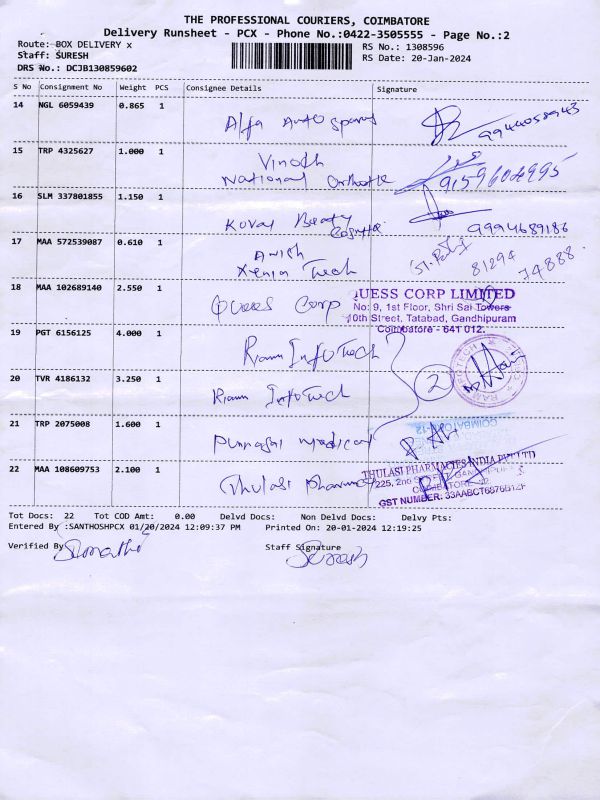 THE PROFESSIONAL COURIERS, COIMBATORE
Delivery Runsheet - PCX - Phone No.:0422-3505555 - Page No.:2
Route: BOX DELIVERY x
RS No.: 1308596
Staff: SURESH
RS Date: 20-Jan-2024
DRS No.: DCJB130859602
S No Consignment No Weight PCS Consignee Details Signature
14 NGL 6059439 0.865 1 Alfa Auto Spares 9944058943
15 TRP 4325627 1.000 1 Vinoth
National 
16 SLM 337801855 1.150 1 Kovai Beauty 9994689186
17 MAA 572539087 0.610 1 Anish
Xenia Tech 81294 74888
18 MAA 102689140 2.550 1 Quess Corp
QUESS CORP LIMITED
No: 9, 1st Floor, Shri Sai Towers
10th Street, Tatabad, Gandhipuram
Coimbatore - 641 012.
19 PGT 6156125 4.000 1 Ram InfoTech
20 TVR 4186132 3.250 1 Ram InfoTech 2
21 TRP 2075008 1.600 1 Punnagai Medical
22 MAA 108609753 2.100 1 Thulasi Pharmacy
THULASI PHARMACIES INDIA PVT LTD
GST NUMBER: 33AABCT6876B1ZF
Tot Docs: 22 Tot COD Amt: 0.00 Delvd Docs: Non Delvd Docs: Delvy Pts:
Entered By :SANTHOSHPCX 01/20/2024 12:09:37 PM Printed On: 20-01-2024 12:19:25
Verified By Staff Signature
Suresh